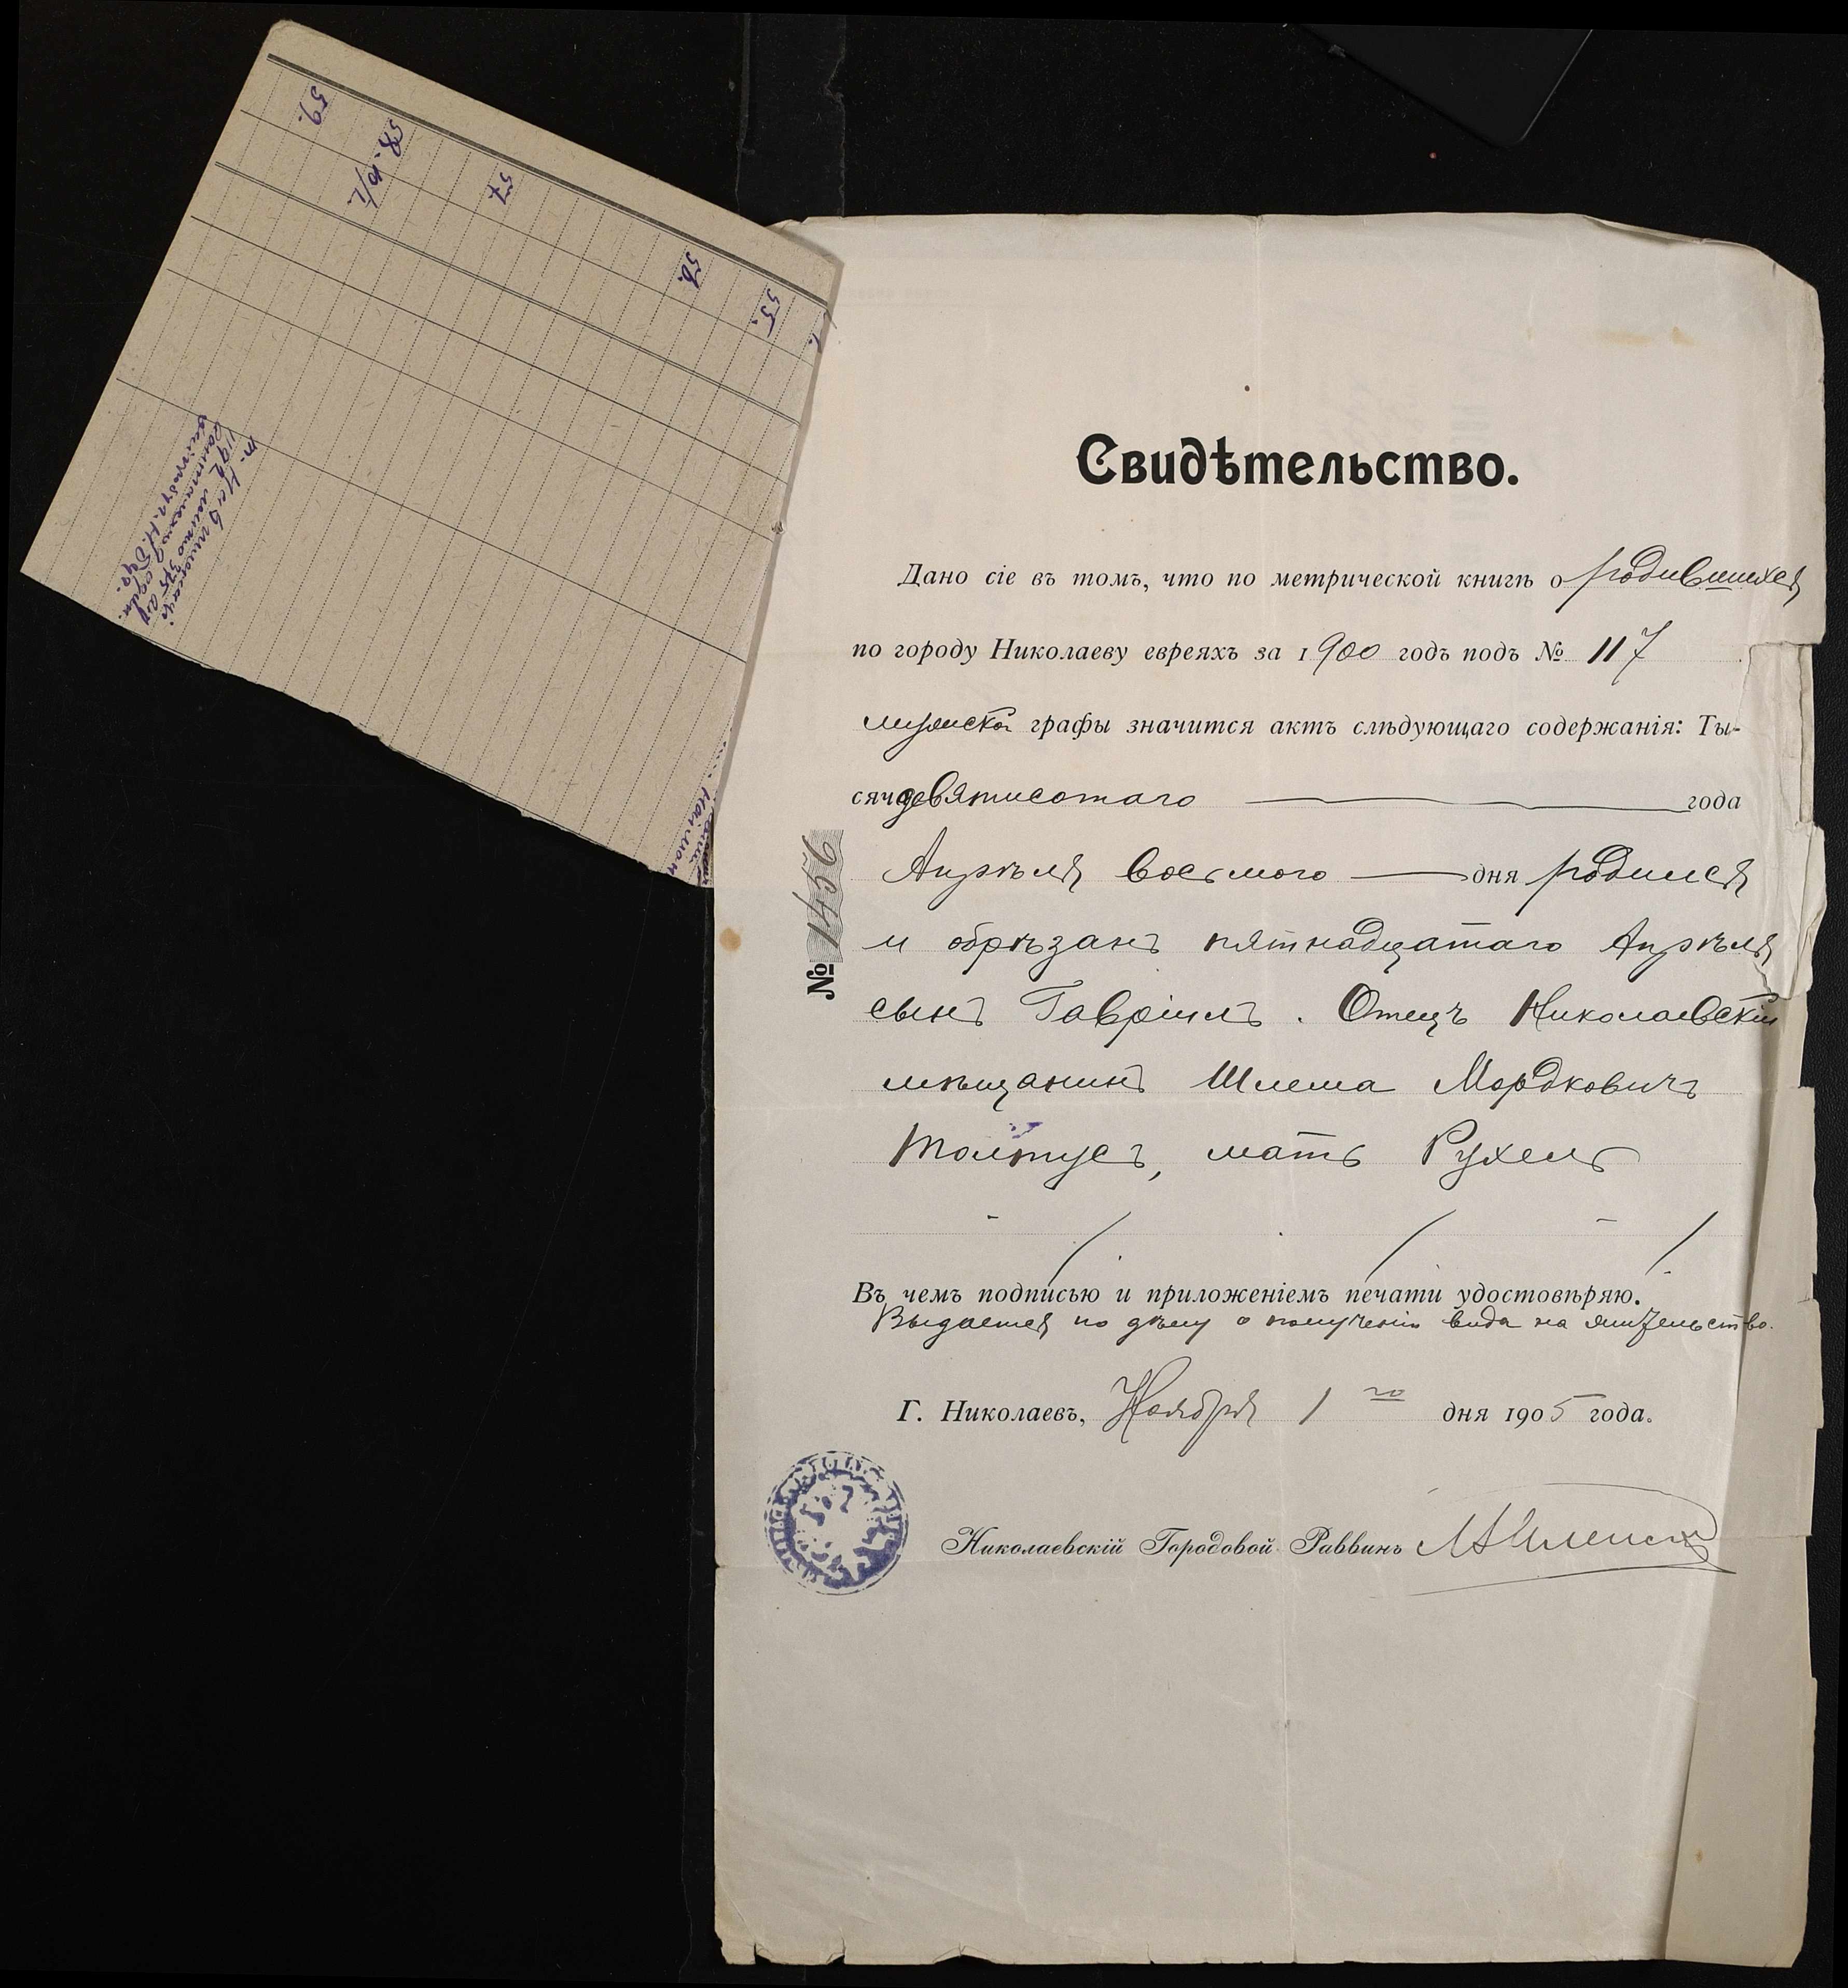 59.
58. 10/I.
57.
56.
55.
Свидѣтельство.
Дано сіе въ томъ, что по метрической книгѣ о родившихся
по городу Николаеву евреяхъ за 1900 годъ подъ № 117
мужской графы значится актъ слѣдующаго содержанія: Ты-
сяча девятисотаго года
Апрѣля восьмого дня родился
и обрѣзанъ пятнадцатаго Апрѣля
сынъ Гавріилъ. Отецъ Николаевскій
мѣщанинъ Шлема Мордковичъ
Толтусъ, мать Рухель
Въ чемъ подписью и приложеніемъ печати удостовѣряю.
Выдается по дѣлу о полученіи вида на жительство.
Г. Николаевъ, Ноября 1го дня 1905 года.
Николаевскій Городовой Раввинъ
№ 1456